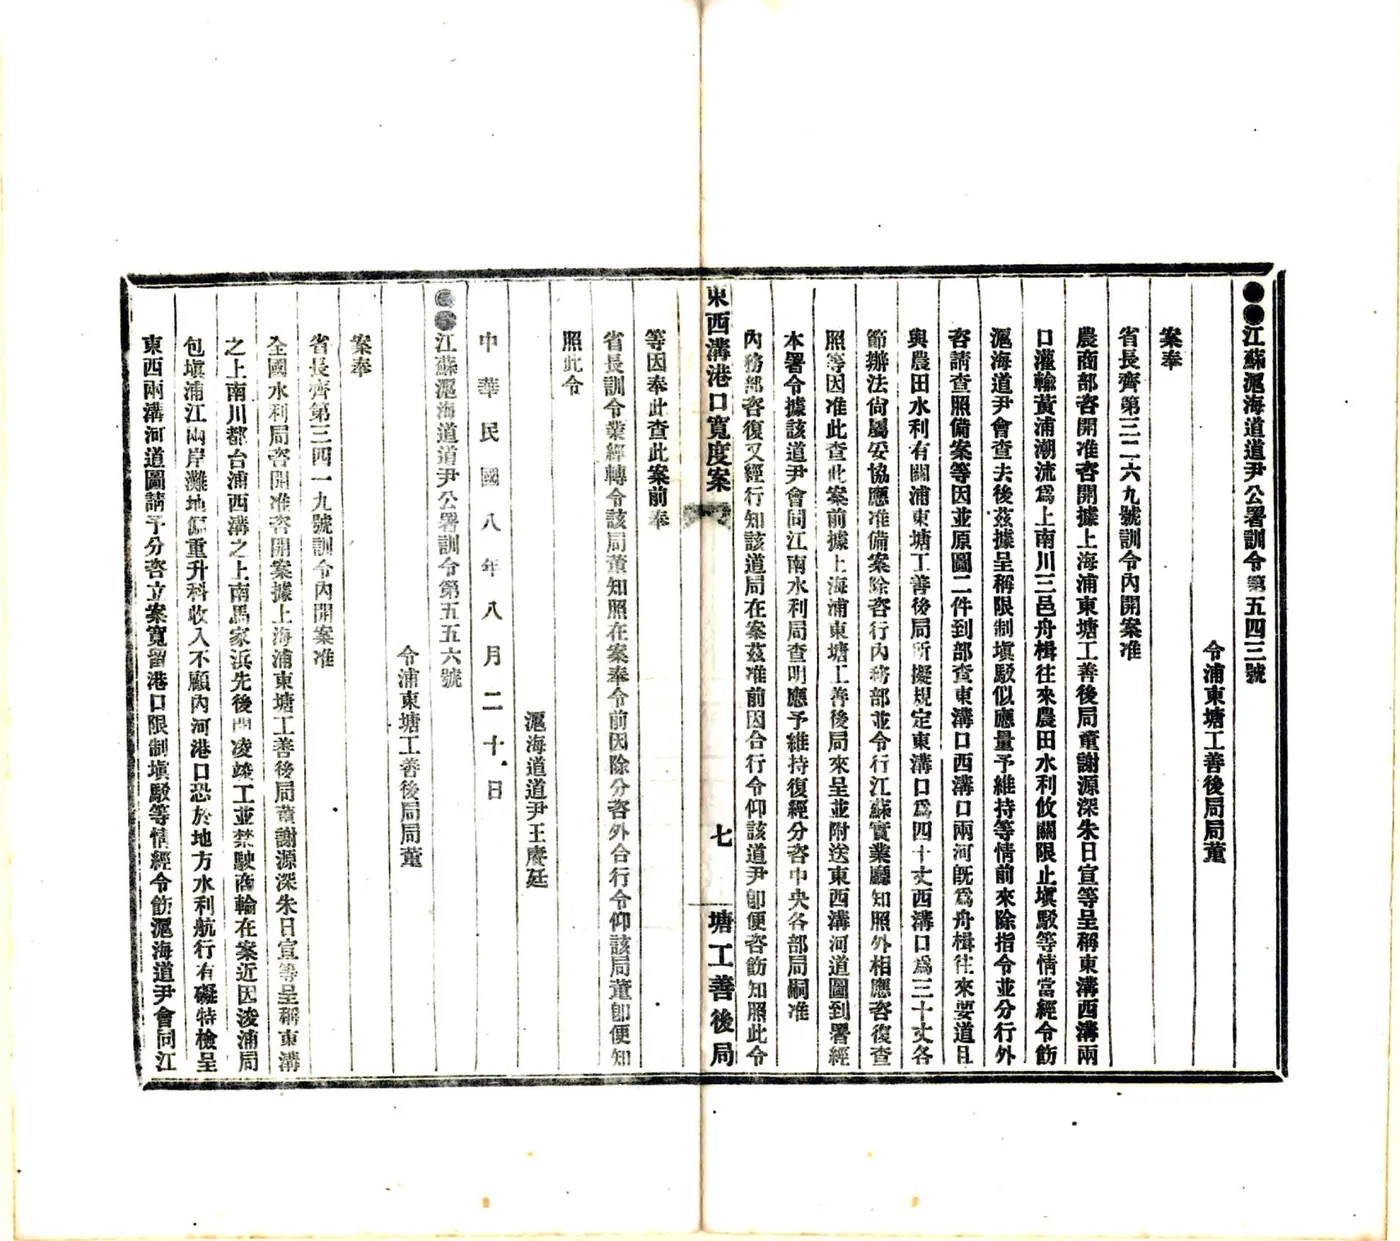 ●●江蘇滬海道道尹公署訓令第五四三號
令浦東塘工善後局局董
案奉
省長齊第三二六九號訓令內開案准
農商部咨開准咨開據上海浦東塘工善後局董謝源深朱日宣等呈稱東溝西溝兩
口灌輸黃浦潮流爲上南川三邑舟楫往來農田水利攸關限止塡駁等情當經令飭
滬海道尹會查去後茲據呈稱限制塡駁似應量予維持等情前來除指令並分行外
咨請查照備案等因並原圖二件到部查東溝口西溝口兩河旣爲舟楫往來要道且
與農田水利有關浦東塘工善後局所擬規定東溝口爲四十丈西溝口爲三十丈各
節辦法尙屬妥協應准備案除咨行內務部並令行江蘇實業廳知照外相應咨復查
照等因准此查此案前據上海浦東塘工善後局來呈並附送東西溝河道圖到署經
本署令據該道尹會同江南水利局查明應予維持復經分咨中央各部局嗣准
內務部咨復又經行知該道局在案茲准前因合行令仰該道尹卽便咨飭知照此令
東西溝港口寬度案
七
塘工善後局
等因奉此查此案前奉
省長訓令業經轉令該局董知照在案奉令前因除分咨外合行令仰該局董卽便知
照此令
滬海道道尹王賡廷
中華民國八年八月二十日
●●江蘇滬海道道尹公署訓令第五五六號
令浦東塘工善後局局董
案奉
省長齊第三四一九號訓令內開案准
全國水利局咨開准咨開案據上海浦東塘工善後局董謝源深朱日宣等呈稱東溝
之上南川都台浦西溝之上南馬家浜先後開凌竣工並禁駛商輪在案近因浚浦局
包塡浦江兩岸灘地偏重升科收入不顧內河港口恐於地方水利航行有礙特檢呈
東西兩溝河道圖請予分咨立案寬留港口限制塡駁等情經令飭滬海道尹會同江